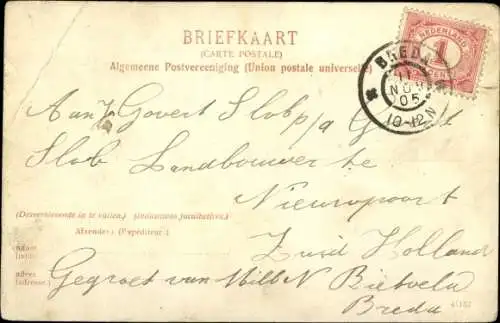 BRIEFKAART
(CARTE POSTALE)
Algemeene Postvereeniging (Union postale universelle)
NEDERLAND
1
CENT
BREDA
NOV
05
10-12N
Aan J. Govert Slob p/a G
Slob Landbouwer te
Nieuwpoort
(Desverlevende in te vullen.) (Indications facultatives.)
Afzender: (Expéditeur:)
Zuid Holland
adres
(adresse:)
Gegroet van N Bietveld
Breda